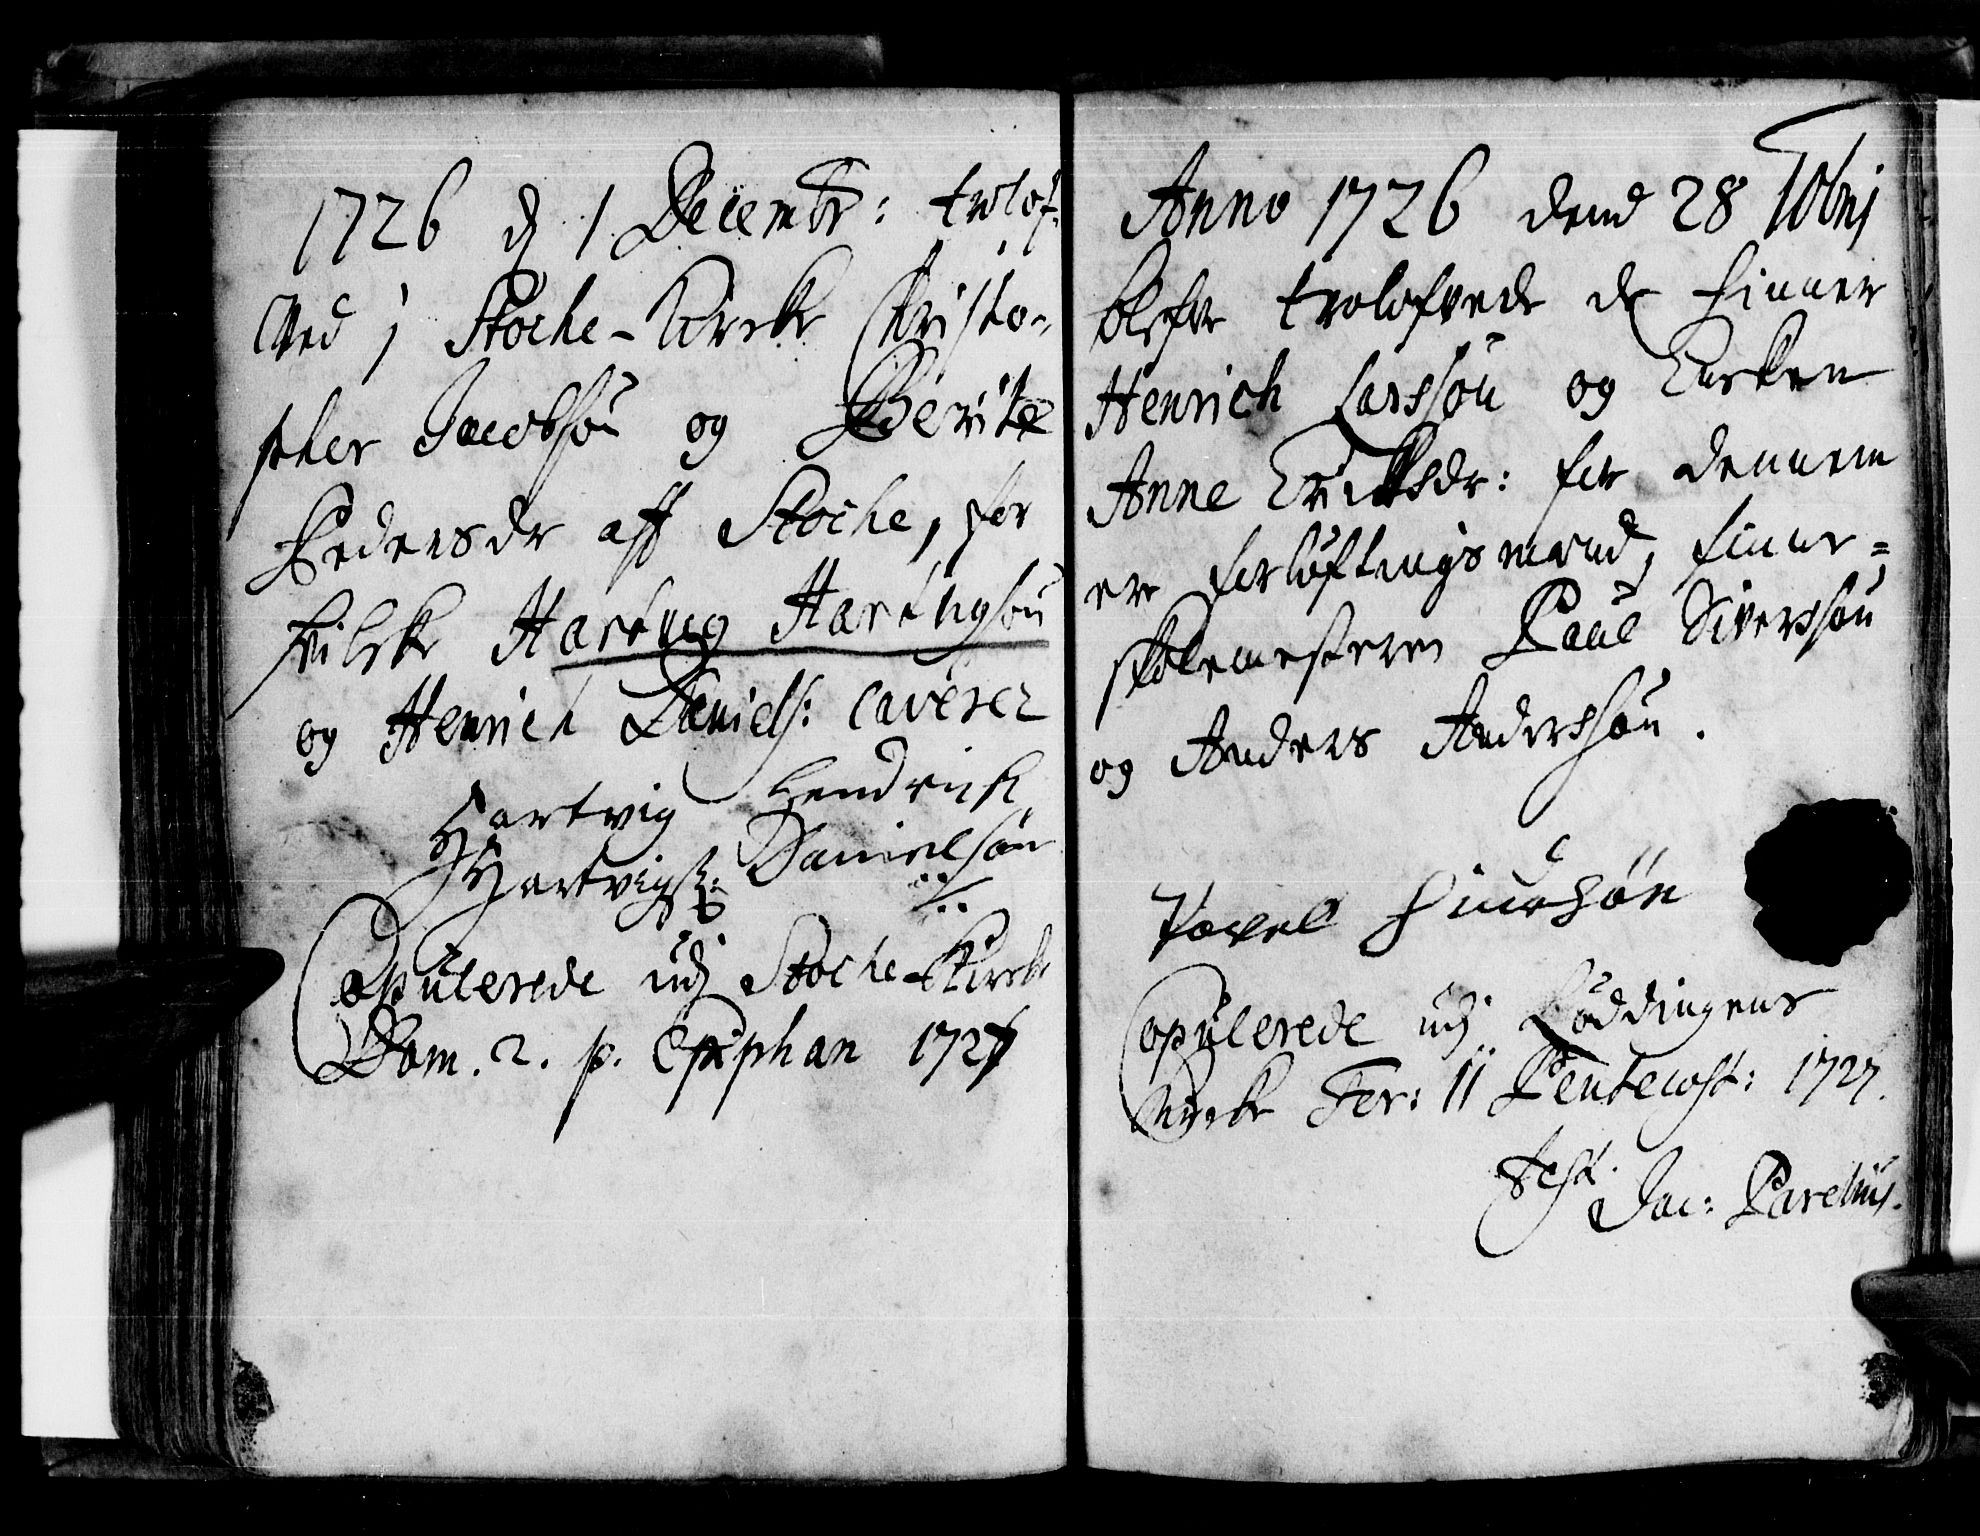 1726 d 1 Decembr: trolof-
wed j Stoche-Kircke Christo-
pher Jacobsøn og Berite
Pedersdr aff Stoche, for
hvilcke Hartvig Hartvigsøn
og Henrich Daniels: caverer
Hartvig Hendrich
Hartvigs: Danielsøn
Copulerede udj Stoche-Kircke
Dom. 2. p. Epiphan 1727
Anno 1726 dend 28 Xbris
blefve trolofvede de Finner
Henrich Larssøn og Enken
Anne Ericksdr: for dennem
er forløftningsmænd, Finne=
skolemesteren Paul Siverssøn
og Anders Anderssøn.
Povel Siversøn
Copulerede udj Løddingens
Kircke Fer: II Pentecost: 1727.
Test.
Jac: Parelius.